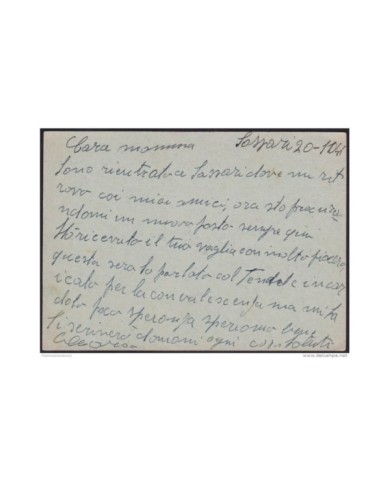 Cara mamma Sassari 20-10-4
Sono rientrato a Sassari dove mi rit
rovo coi miei amici; ora sto procura
ndomi un nuovo posto sempre qui
Hò ricevuto il tuo vaglia con molto piacere
questa sera ho parlato col Tendel incar
icato per la convalescenza ma mi fa
dato poco speranza speriamo bene
Ti scriverò domani ogni cosa Saluti
www.delcampe.net